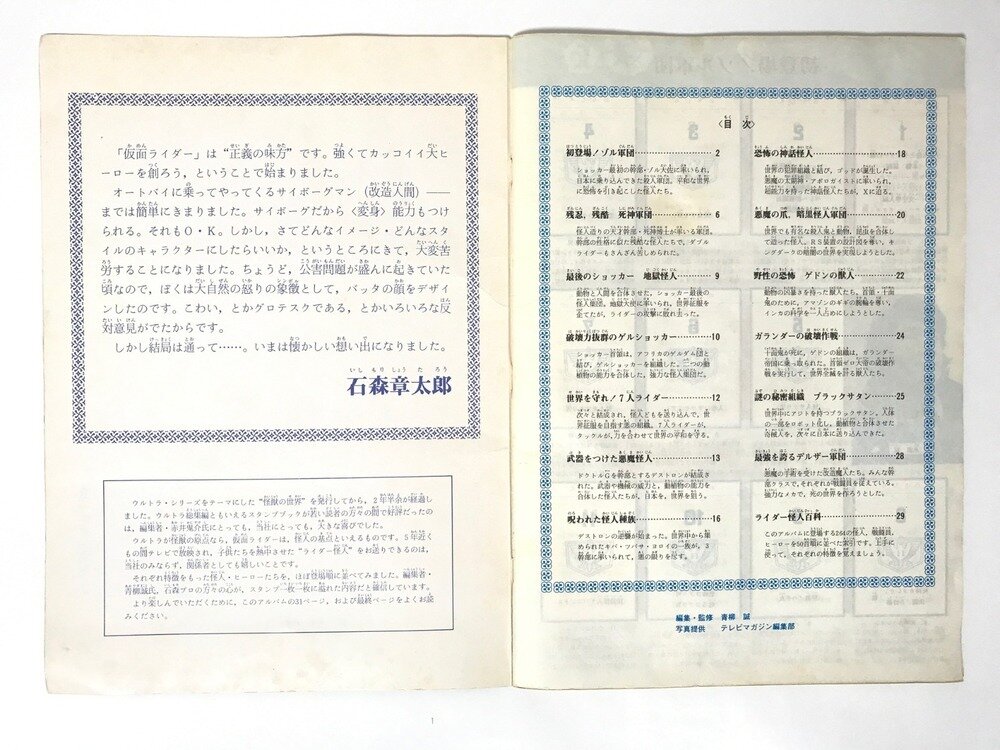 「仮面ライダー」は“正義の味方”です。強くてカッコイイ大ヒ
ーローを創ろう，ということで始まりました。
オートバイに乗ってやってくるサイボーグマン（改造人間）——
までは簡単にきまりました。サイボーグだから〈変身〉能力もつけ
られる。それもO・K。しかし，さてどんなイメージ・どんなスタ
イルのキャラクターにしたらいいか，というところにきて，大変苦
労することになりました。ちょうど，公害問題が盛んに起きていた
頃なので，ぼくは大自然の怒りの象徴として，バッタの顔をデザイ
ンしたのです。こわい，とかグロテスクである，とかいろいろな反
対意見がでたからです。
しかし結局は通って……。いまは懐かしい想い出になりました。
石森章太郎
ウルトラ・シリーズをテーマにした“怪獣の世界”を発行してから，2年半余が経過し
ました。ウルトラ総集編ともいえるスタンプブックが若い読者の方々の間で好評だったの
は，編集者・赤井鬼介氏にとっても，当社にとっても，大きな喜びでした。
ウルトラが怪獣の原点なら，仮面ライダーは，怪人の基点といえるものです。5年近く
もの間テレビで放映され，子供たちを熱中させた“ライダー怪人”をお送りできるのは，
当社のみならず，関係者としても嬉しいことです。
それぞれ特徴をもった怪人・ヒーローたちを，ほぼ登場順に並べてみました。編集者・
青柳誠氏，石森プロの方々の心が，スタンプ一枚一枚に溢れた内容だと確信しています。
より楽しんでいただくために，このアルバムの31ページ，および最終ページをよくお読
みください。
〈目次〉
初登場！ゾル軍団 2
ショッカー最初の幹部・ゾル大佐に率いられ，
日本に乗り込んできた殺人軍団。平和な世界
に恐怖を引き起こした怪人たち。
残忍，残酷 死神軍団 6
人造りの天才幹部・死神博士が率いる軍団。
幹部の性格に似た残酷な怪人たちで，ダブル
ライダーもさんざん苦しめられた。
最後のショッカー 地獄怪人 9
動物と人間を合体させた，ショッカー最後の
怪人集団。地獄大使に率いられ，世界征服を
企てたが，ライダーの攻撃に敗れ去った。
破壊力抜群のゲルショッカー 10
ショッカー首領は，アフリカのゲルダム団と
結び，ゲルショッカーを組織した。二つの動
植物の能力を合体した，強力な怪人集団だ。
世界を守れ！7人ライダー 12
次々と結成され，怪人どもを送り込んで，世
界征服を目指す悪の組織。7人ライダーが，
タックルが，力を合わせて世界の平和を守る。
武器をつけた悪魔怪人 13
ドクトルGを幹部とするデストロンが結成され
た。武器や機械の威力と，動物の能力を
合体した怪人たちが，日本を，世界を狙う。
呪われた怪人種族 16
デストロンの逆襲が始まった。世界中から集
められたキバ・ツバサ・ヨロイの一族が，3
幹部に率いられて，悪の限りを尽す。
恐怖の神話怪人 18
世界の犯罪組織と結び，ゴッドが誕生した。
悪魔の太陽神・アポロガイストに率いられ，
超能力を持った神話怪人たちが，Xに迫る。
悪魔の爪，暗黒怪人軍団 20
世界でも有名な殺人鬼と動物，昆虫を合体し
て造った怪人。RS装置の設計図を奪い，キ
ングダークの暗闇の世界を実現しようとした。
野性の恐怖 ゲドンの獣人 22
動物の凶暴さを持った獣人たち。首領・十面
鬼のために，アマゾンのギギの腕輪を奪い，
インカの科学を一人占めにしようとした。
ガランダーの破壊作戦 24
十面鬼が死に，ゲドンの組織は，ガランダー
帝国に乗っ取られた。首領ゼロ大帝の破壊作
戦を実行して，世界全滅を計る獣人たち。
謎の秘密組織 ブラックサタン 25
世界中にアジトを持つブラックサタン。人体
の一部をロボット化し，動植物と合体させた
奇械人を，次々に日本に送り込んできた。
最強を誇るデルザー軍団 28
悪魔の手術を受けた改造魔人たち。みんな幹
部クラスで，それぞれが戦闘員を従えている。
強力なメカで，死の世界を作ろうとした。
ライダー怪人百科 29
このアルバムに登場する264の怪人，戦闘員，
ヒーローを50音順に並べた索引です。上手に
使って，それぞれの特徴を覚えましょう。
編集・監修 青柳 誠
写真提供 テレビマガジン編集部